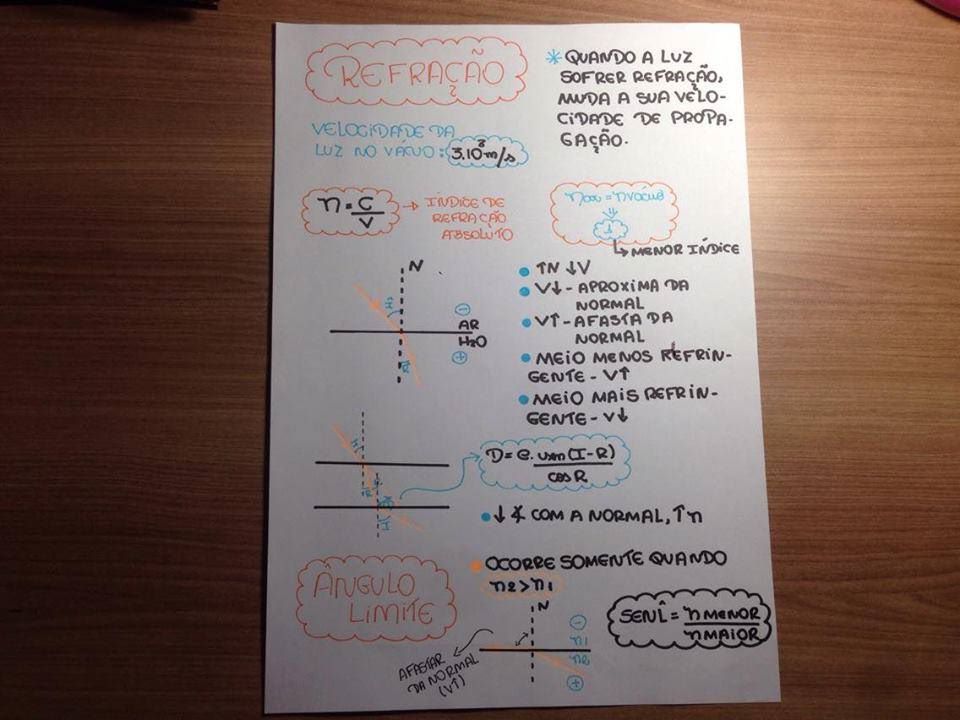 REFRAÇÃO
* QUANDO A LUZ
SOFRER REFRAÇÃO,
MUDA A SUA VELO-
CIDADE DE PROPA-
GAÇÃO.
VELOCIDADE DA
LUZ NO VÁCUO: 3.10⁸m/s
n = C/V → ÍNDICE DE
REFRAÇÃO
ABSOLUTO
nar = nvácuo
1
↳ MENOR ÍNDICE
N
AR
H2O
• ↑N ↓V
• V↓ - APROXIMA DA
NORMAL
• V↑ - AFASTA DA
NORMAL
• MEIO MENOS REFRIN-
GENTE - V↑
• MEIO MAIS REFRIN-
GENTE - V↓
D = e. sen(I-R)/cos R
• ↓∡ COM A NORMAL, ↑n
ÂNGULO
LIMITE
• OCORRE SOMENTE QUANDO
n2 > n1
N
n1
n2
AFASTAR
DA NORMAL
(V↑)
SEN L̂ = n MENOR/n MAIOR